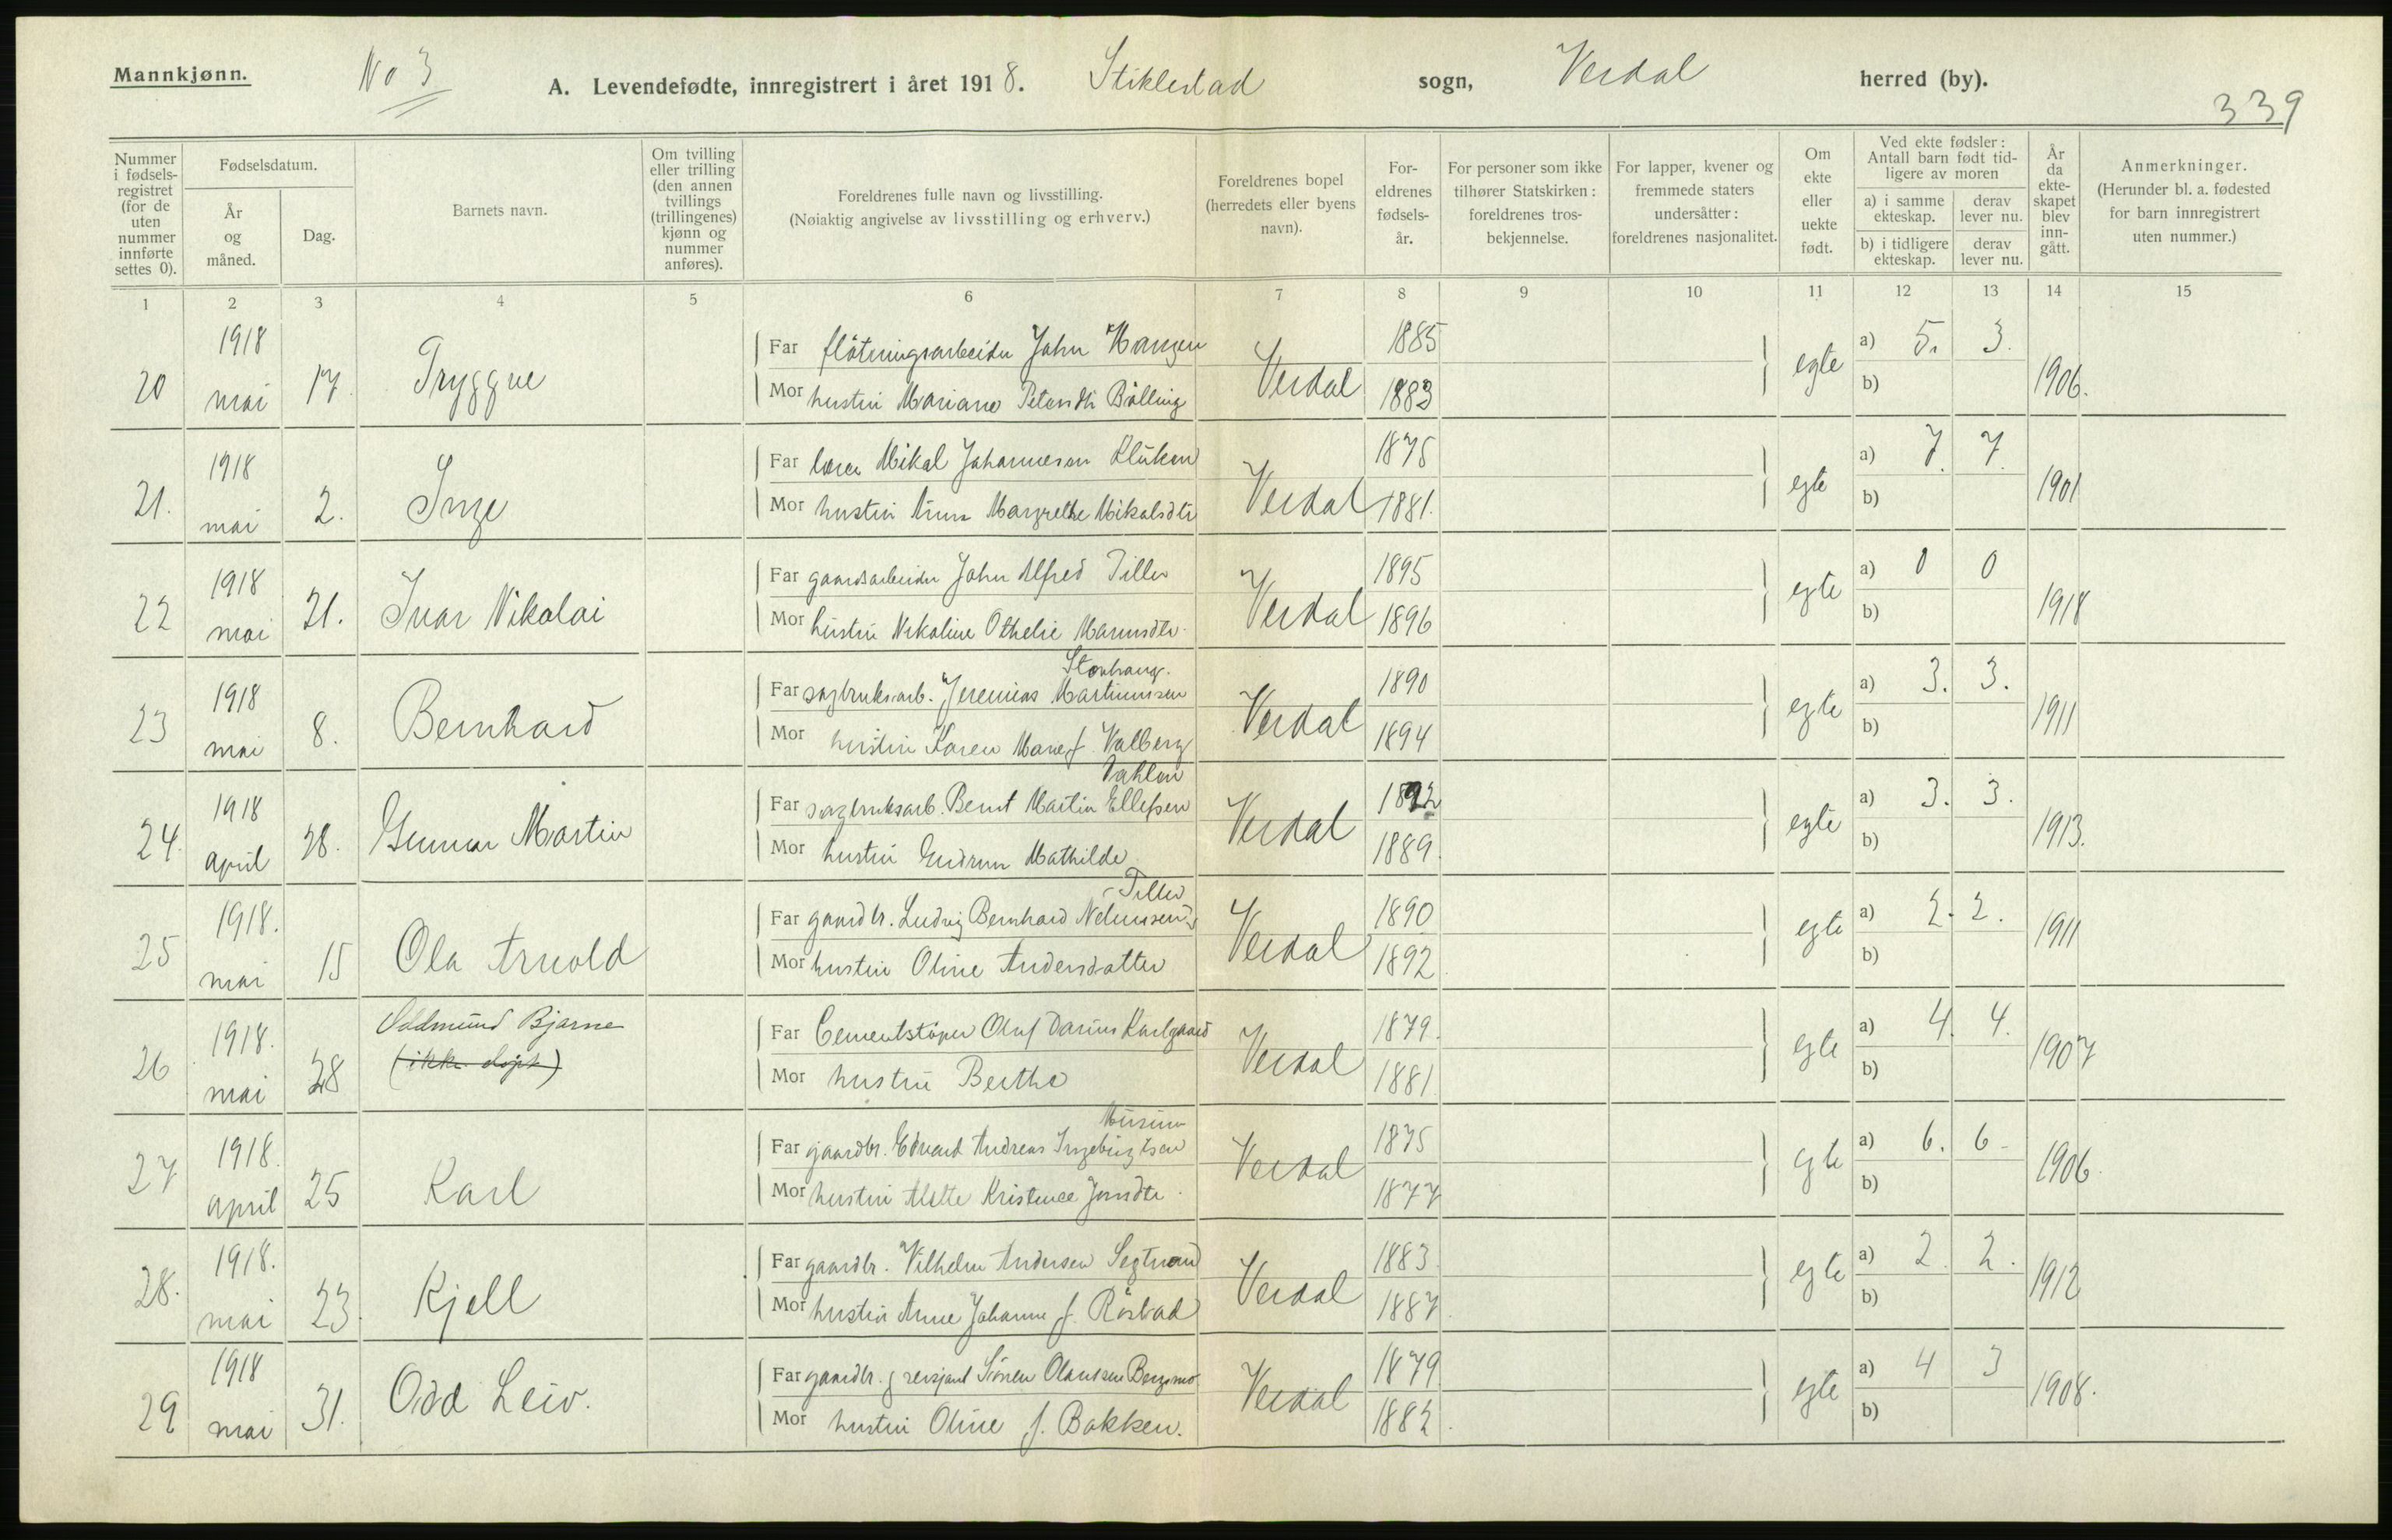 Mannkjønn.
No 3
A. Levendefødte, innregistrert i året 1918. Stiklestad sogn, Verdal herred (by).
339
Nummer i fødselsregistret (for de uten nummer innførte settes 0).
Fødselsdatum.
År og måned.
Dag.
Barnets navn.
Om tvilling eller trilling (den annen tvillings (trillingenes) kjønn og nummer anføres).
Foreldrenes fulle navn og livsstilling.
(Nøiaktig angivelse av livsstilling og erhverv.)
Foreldrenes bopel (herredets eller byens navn).
Foreldrenes fødselsår.
For personer som ikke tilhører Statskirken: foreldrenes trosbekjennelse.
For lapper, kvener og fremmede staters undersåtter: foreldrenes nasjonalitet.
Om ekte eller uekte født.
Ved ekte fødsler: Antall barn født tidligere av moren
a) i samme ekteskap.
derav lever nu.
b) i tidligere ekteskap.
derav lever nu.
År da ekteskapet blev inngått.
Anmerkninger.
(Herunder bl. a. fødested for barn innregistrert uten nummer.)
1 2 3 4 5 6 7 8 9 10 11 12 13 14 15
20 1918 mai 17. Tryggve
Far flötningsarbeider John Hangen 1885
Mor hustru Mariane Petersdtr Balling 1883
Verdal egte a) 5. 3. b) 1906.
21. 1918 mai 2. Inge
Far lærer Mikal Johannesen Kluken 1875
Mor hustru Anna Margrethe Mikalsdtr 1881.
Verdal egte a) 7. 7. b) 1901
22 1918 mai 21. Ivar Nikolai
Far gaardsarbeider John Alfred Tiller 1895
Mor hustru Nikoline Othelie Mariusdtr. 1896
Verdal egte a) 0 0 b) 1918
23 1918 mai 8. Bernhard
Far sagbruksarb. Jeremias Martinussen 1890
Mor hustru Karen Marie f. Valberg 1894
Verdal egte a) 3. 3. b) 1911
24. 1918 april 28. Gunnar Martin
Far sagbruksarb. Bernt Martin Ellefsen Dahlen 1892
Mor hustru Gudrun Mathilde 1889.
Verdal egte a) 3. 3. b) 1913.
25 1918. mai 15 Ola Arnold
Far gaardbr. Ludvig Bernhard Tiller 1890
Mor hustru Oline Andersdatter 1892
Verdal egte a) 2. 2. b) 1911
26 1918. mai 28 Oddmund Bjarne
(ikke døpt)
Far Cementstöper Oluf Darius Karlgaard 1879.
Mor hustru Berthe 1881
Verdal egte a) 4. 4. b) 1907
27 1918. april 25 Karl
Far gaardbr. Edvard Andreas Ingebrigtsen Musum 1875
Mor hustru Alette Kristence Jonsdtr. 1877
Verdal egte a) 6. 6 b) 1906.
28. 1918. mai 23. Kjell
Far gaardbr. Vilhelm Andersen Segtnan 1883
Mor hustru Anne Johanne f. Röstad 1887.
Verdal egte a) 2. 2. b) 1912
29 1918 mai 31. Odd Leiv.
Far gaardbr. g sersjant Sören Olausen Bergsmo 1879
Mor hustru Oline f. Bakken. 1882.
Verdal egte a) 4 3 b) 1908.